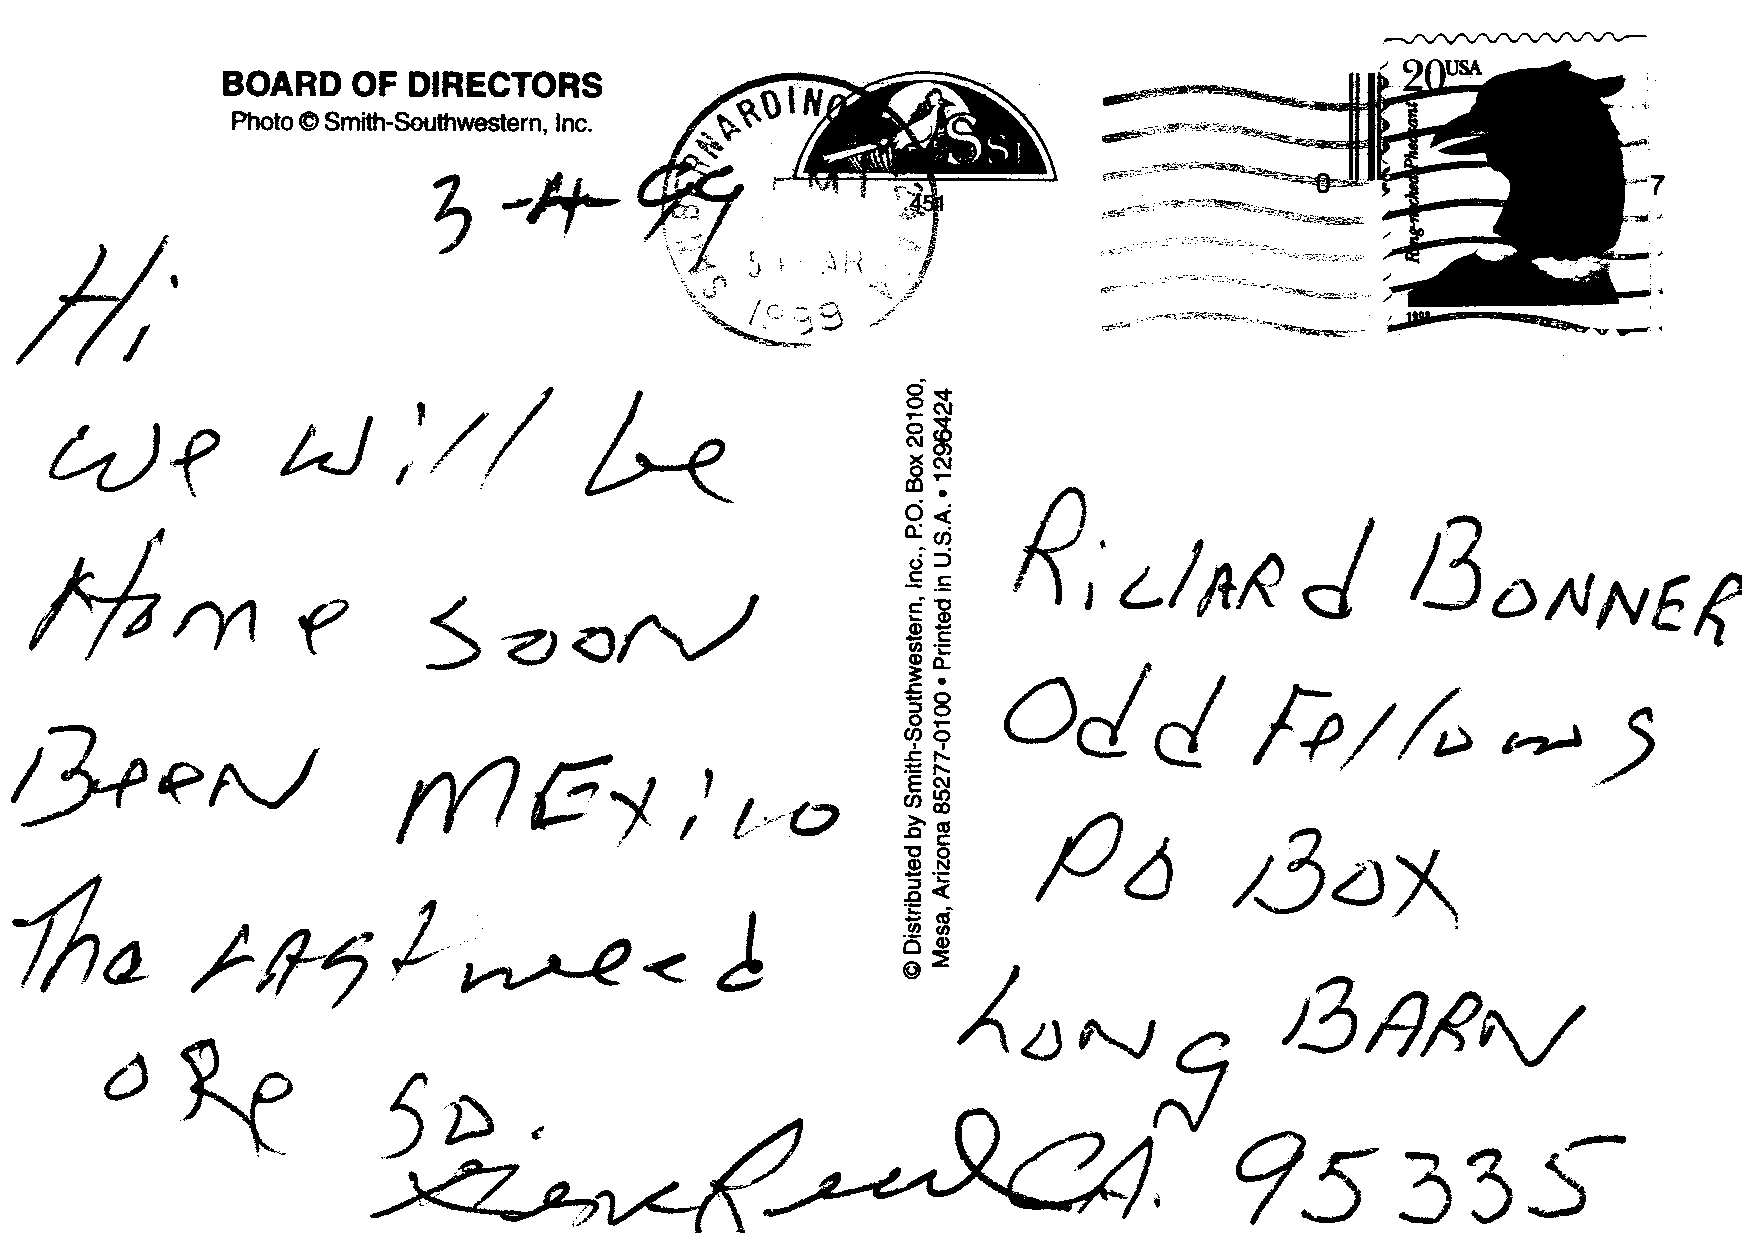 BOARD OF DIRECTORS
Photo © Smith-Southwestern, Inc.
3-4-99
SAN BERNARDINO
MAR
1999
451
20 USA
Ring-necked Pheasant
1998
0
7
Hi
we will be
Home soon
Been MExico
The LAST week
ORe so.
© Distributed by Smith-Southwestern, Inc., P.O. Box 20100,
Mesa, Arizona 85277-0100 • Printed in U.S.A. • 1296424
RicHARd BONNER
Odd Fellows
PO BOX
Long BARN
CA. 95335